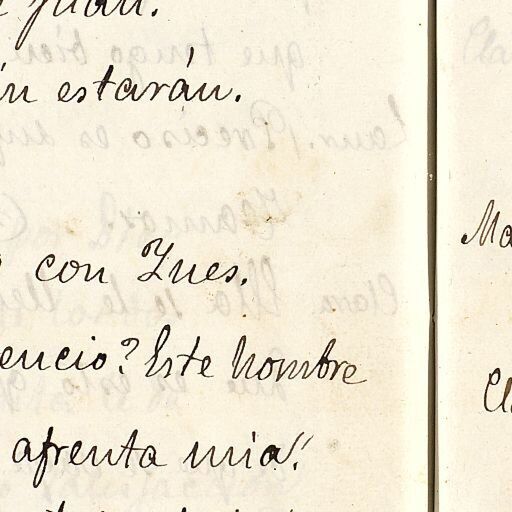 Juan.
estarán.
con Ynes.
encio? Este hombre
afrenta mia!
Ma
Cl